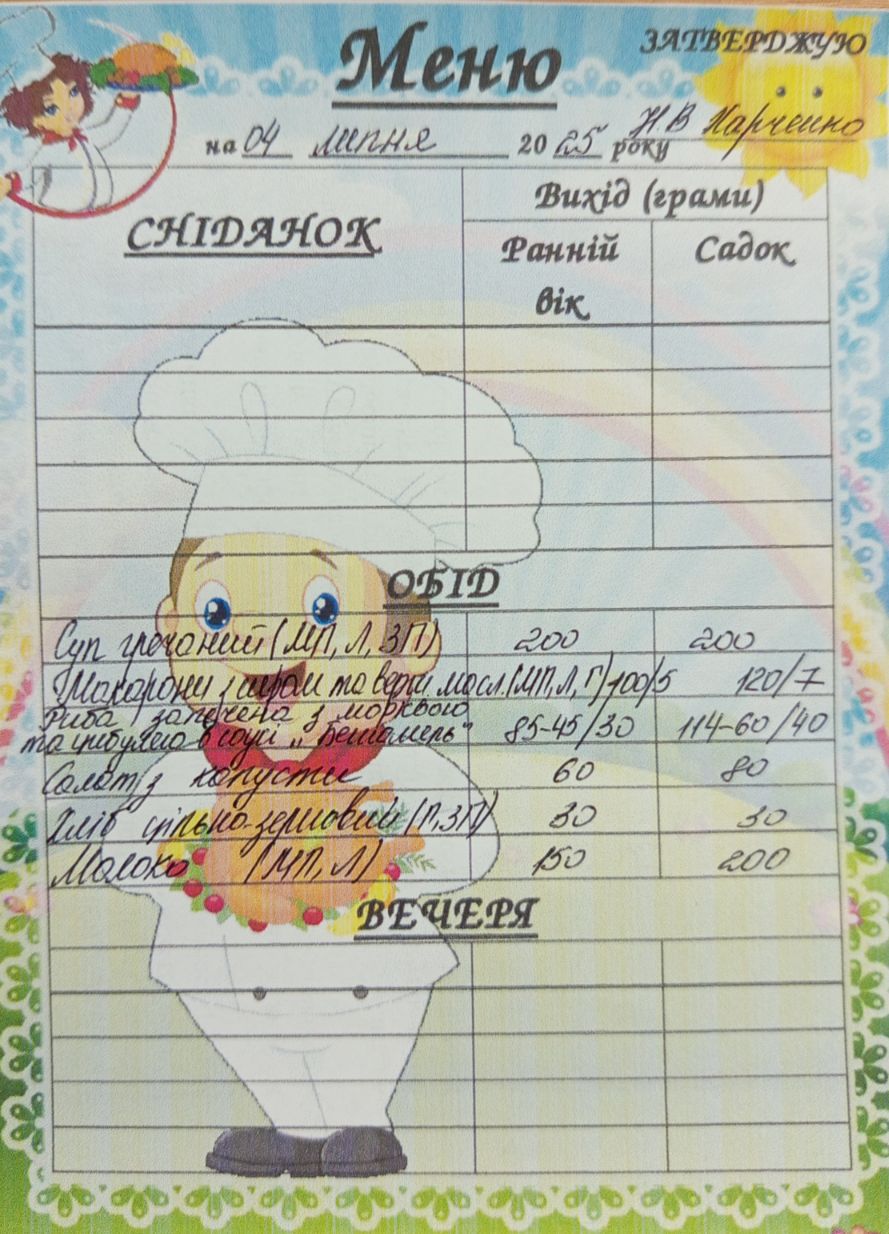 Меню
ЗАТВЕРДЖУЮ
на 04 липня 2025 року Н.В Харченко
СНІДАНОК
Вихід (грами)
Ранній вік
Садок
ОБІД
Суп гречаний (МП, Л, ЗП) 200 200
Макарони з сиром та верш. масл. (МП, Л, Г) 100/5 120/7
Риба запечена з морквою
та цибулею в соусі „Бешамель" 85-45/30 114-60/40
Салат з капусти 60 80
Хліб цільно-зерновий (П, ЗП) 30 30
Молоко (МП, Л) 150 200
ВЕЧЕРЯ